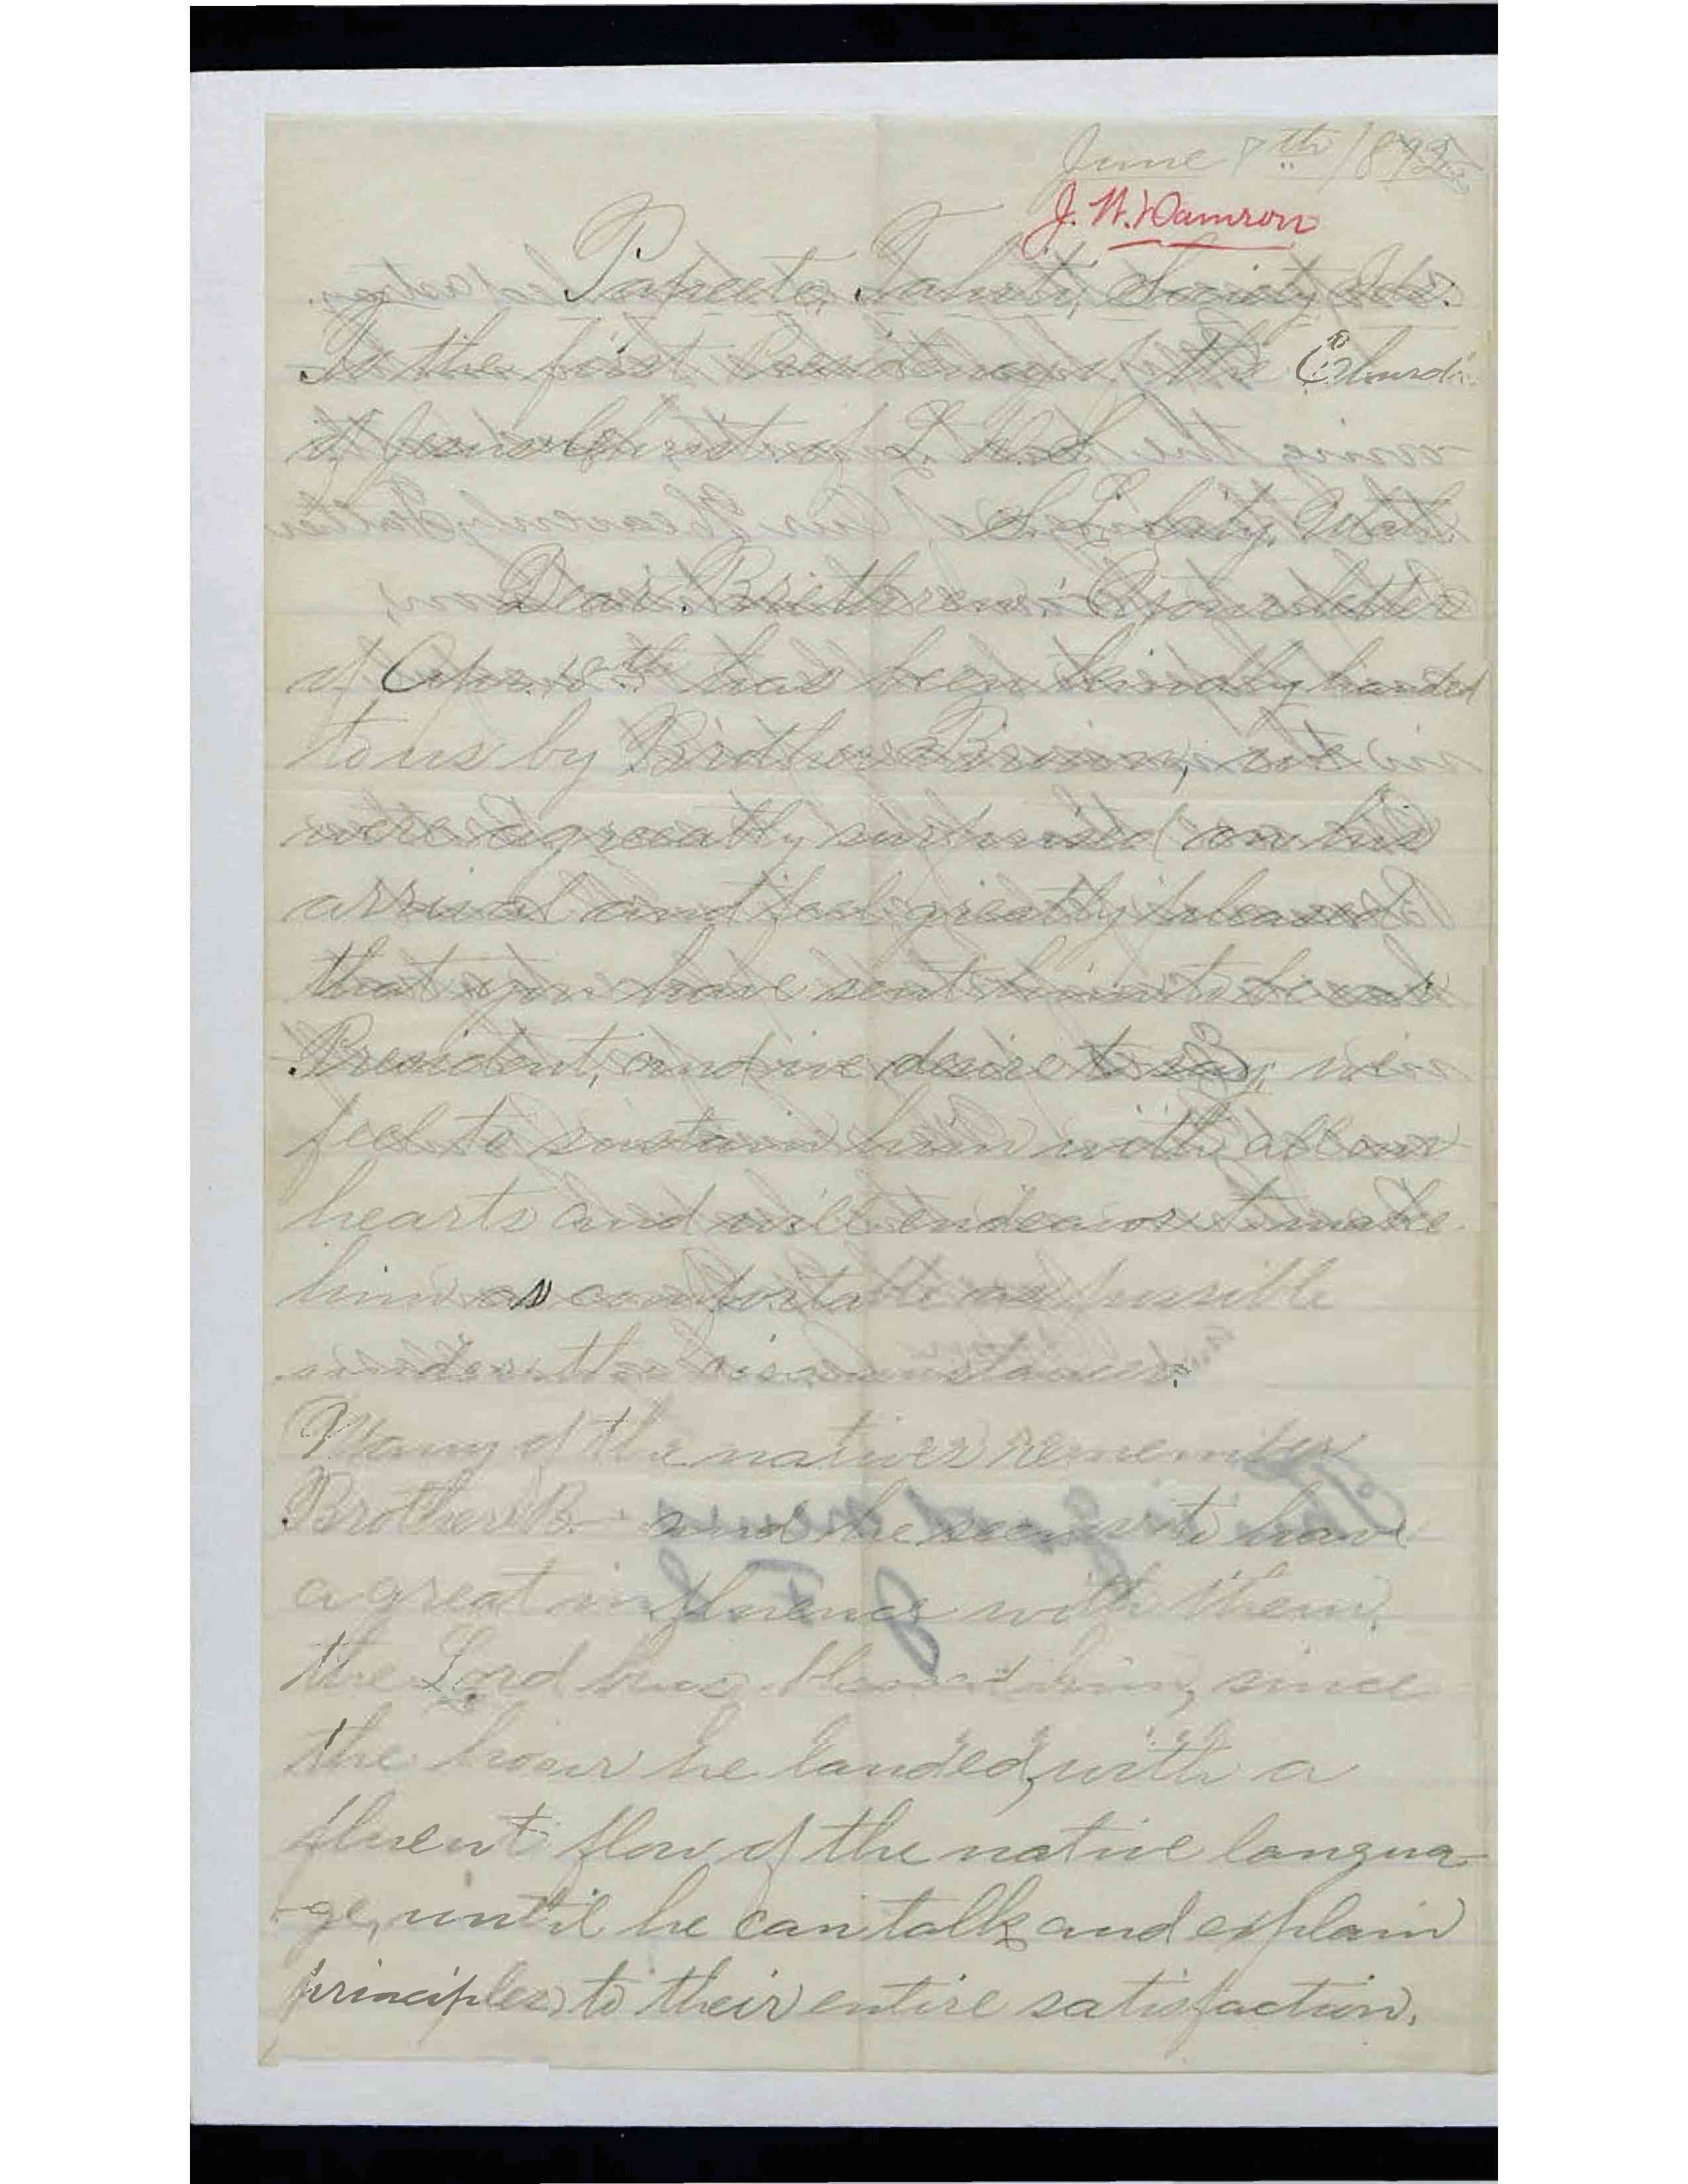 June 8th 1892
J. W. Damron
Papeete, Tahiti, Society Ids.
To the first Presidency of the Church
of Jesus Christ of L. D. S.
S. L. City, Utah
Dear Brethren: Your letter
of Apr. 10th has been kindly handed
to us by Brother Brown, we
were agreeably surprised on his
arrival and feel greatly pleased
that you have sent him to be our
President, and we desire to say, we
feel to sustain him with all our
hearts and will endeavor to make
him as comfortable as possible
under the circumstances.
Many of the natives remember
Brother B. and he seems to have
a great influence with them,
the Lord has blessed him, since
the hour he landed, with a
fluent flow of the native langua-
-ge, until he can talk and explain
principles to their entire satisfaction.